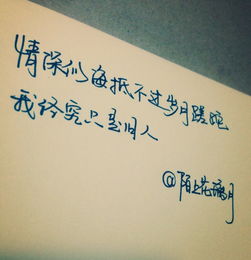 情深似海抵不过岁月蹉跎
我终究只是旧人
@陌上花满月